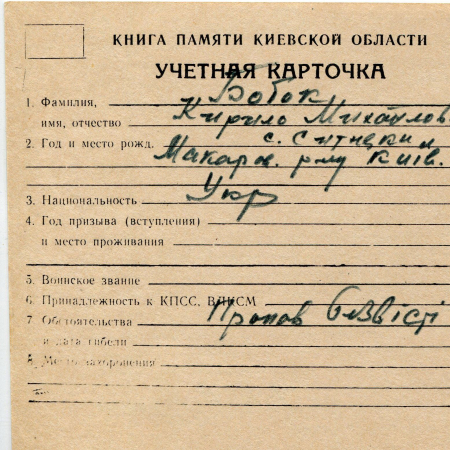 КНИГА ПАМЯТИ КИЕВСКОЙ ОБЛАСТИ
УЧЕТНАЯ КАРТОЧКА
1. Фамилия, Бобок
имя, отчество Кирило Михайлов
2. Год и место рожд. с. Ситняки
Макаров. р-ну Київ.
3. Национальность Укр
4. Год призыва (вступления)
и место проживания
5. Воинское звание
6. Принадлежность к КПСС, ВЛКСМ
7. Обстоятельства Пропав безвісті
и дата гибели
8. Место захоронения